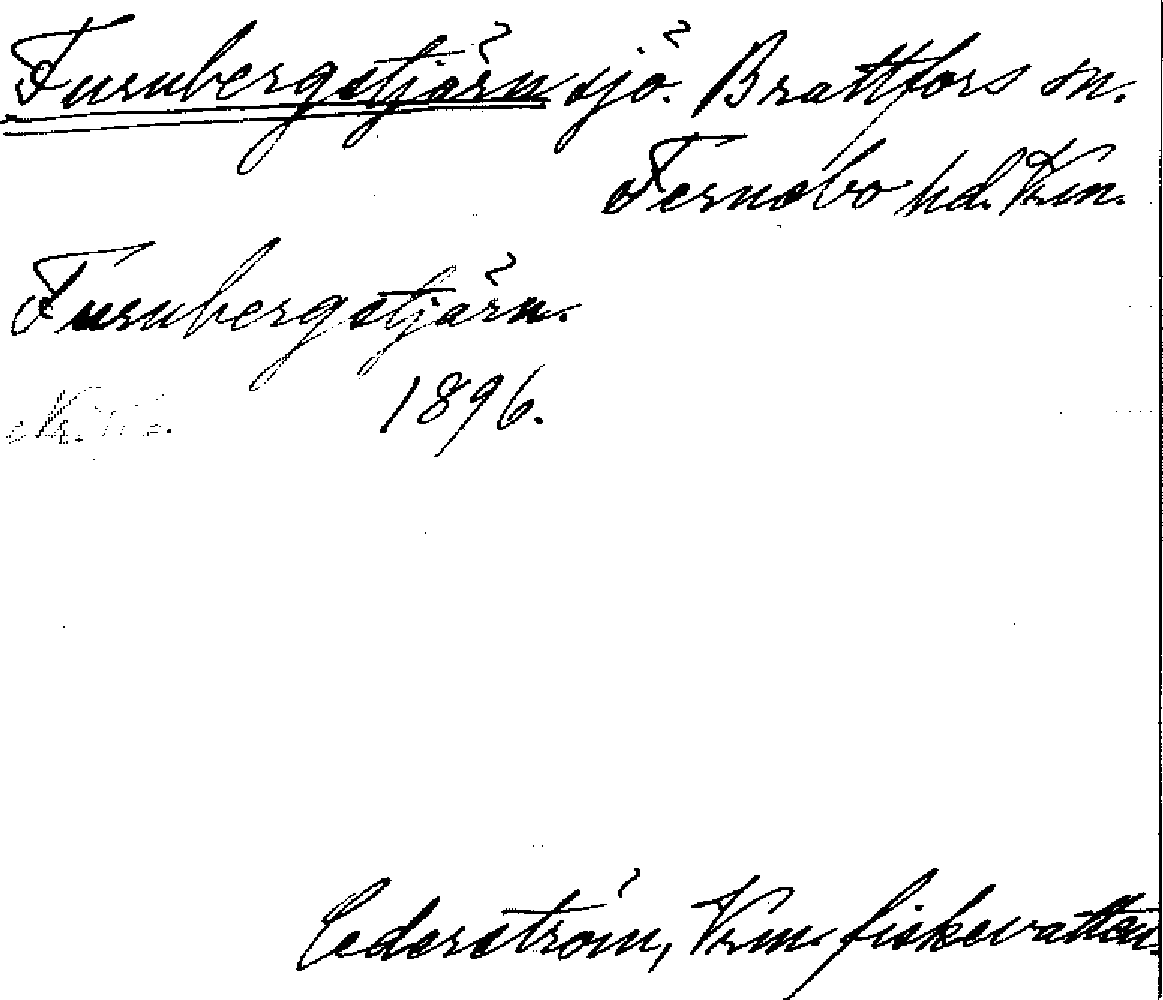 Furubergstjärn sjö. Brattfors sn.
Fernebo hd. Vrm.
Furubergstjärn.
1896.
Cederström, Vrm. fiskevatten.